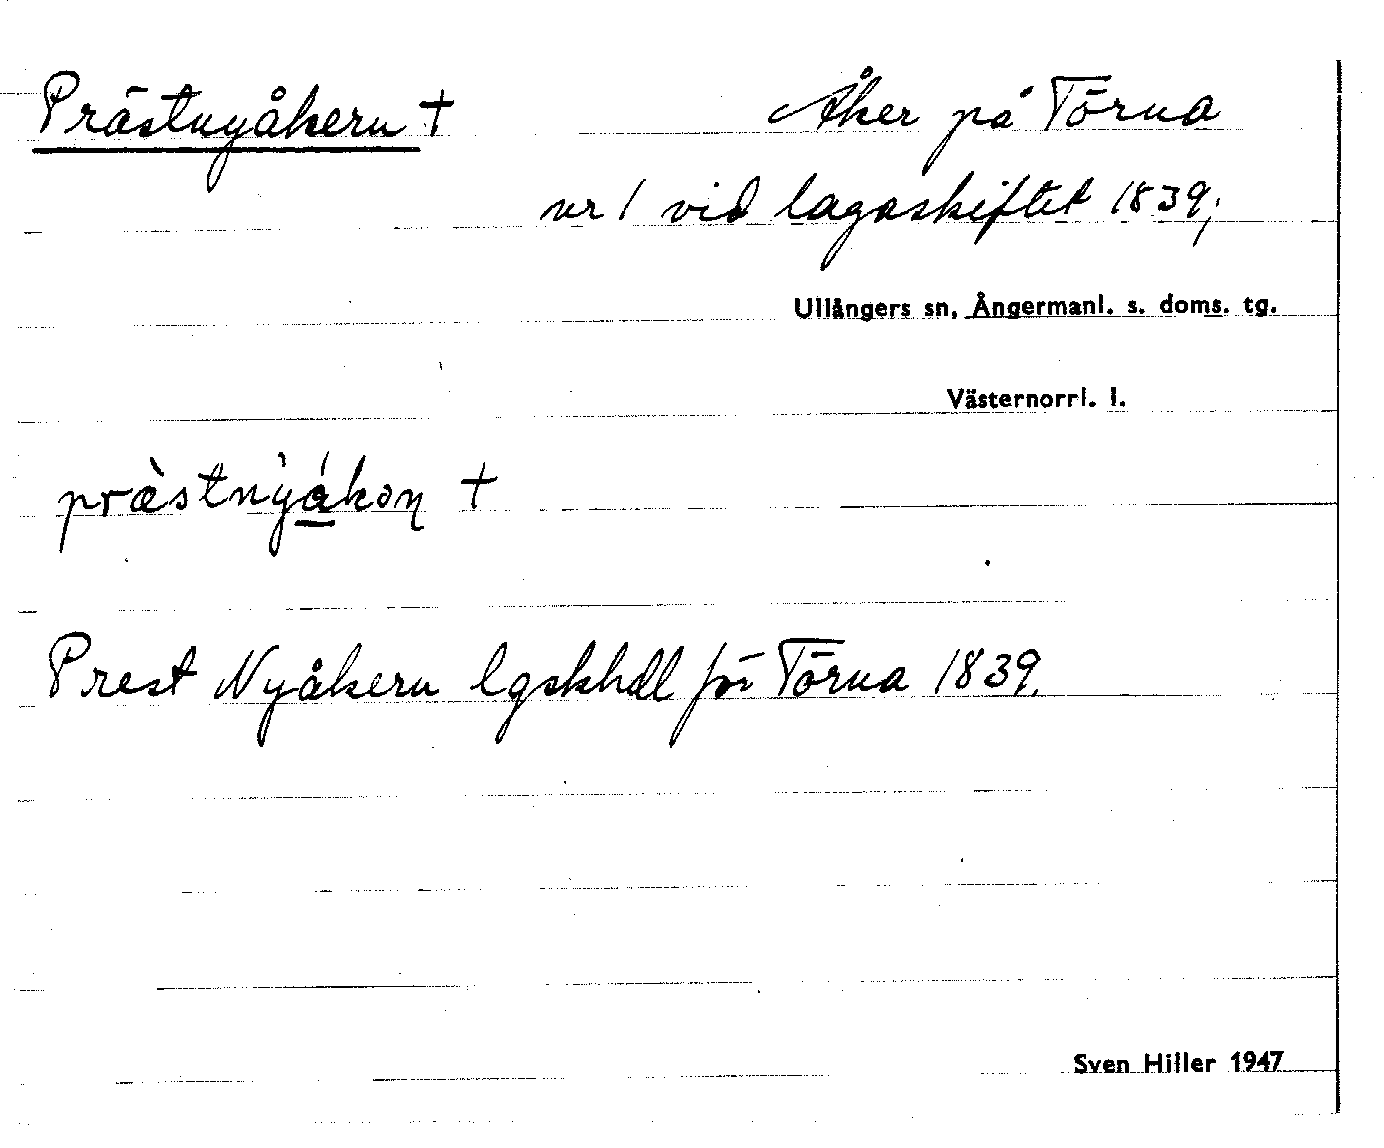 Prästnyåkern † Åker på Törna
nr 1 vid lagaskiftet 1839;
Ullångers sn, Ångermanl. s. doms. tg.
Västernorrl. l.
præ̀stnỳákəɳ †
Prest Nyåkern lgskhdl för Törna 1839.
Sven Hiller 1947